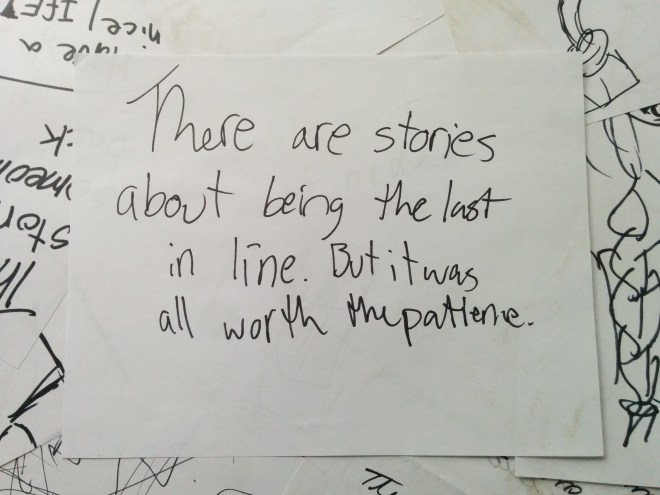 There are stories
about being the last
in line. But it was
all worth the patience.
nice / IFFY
have a